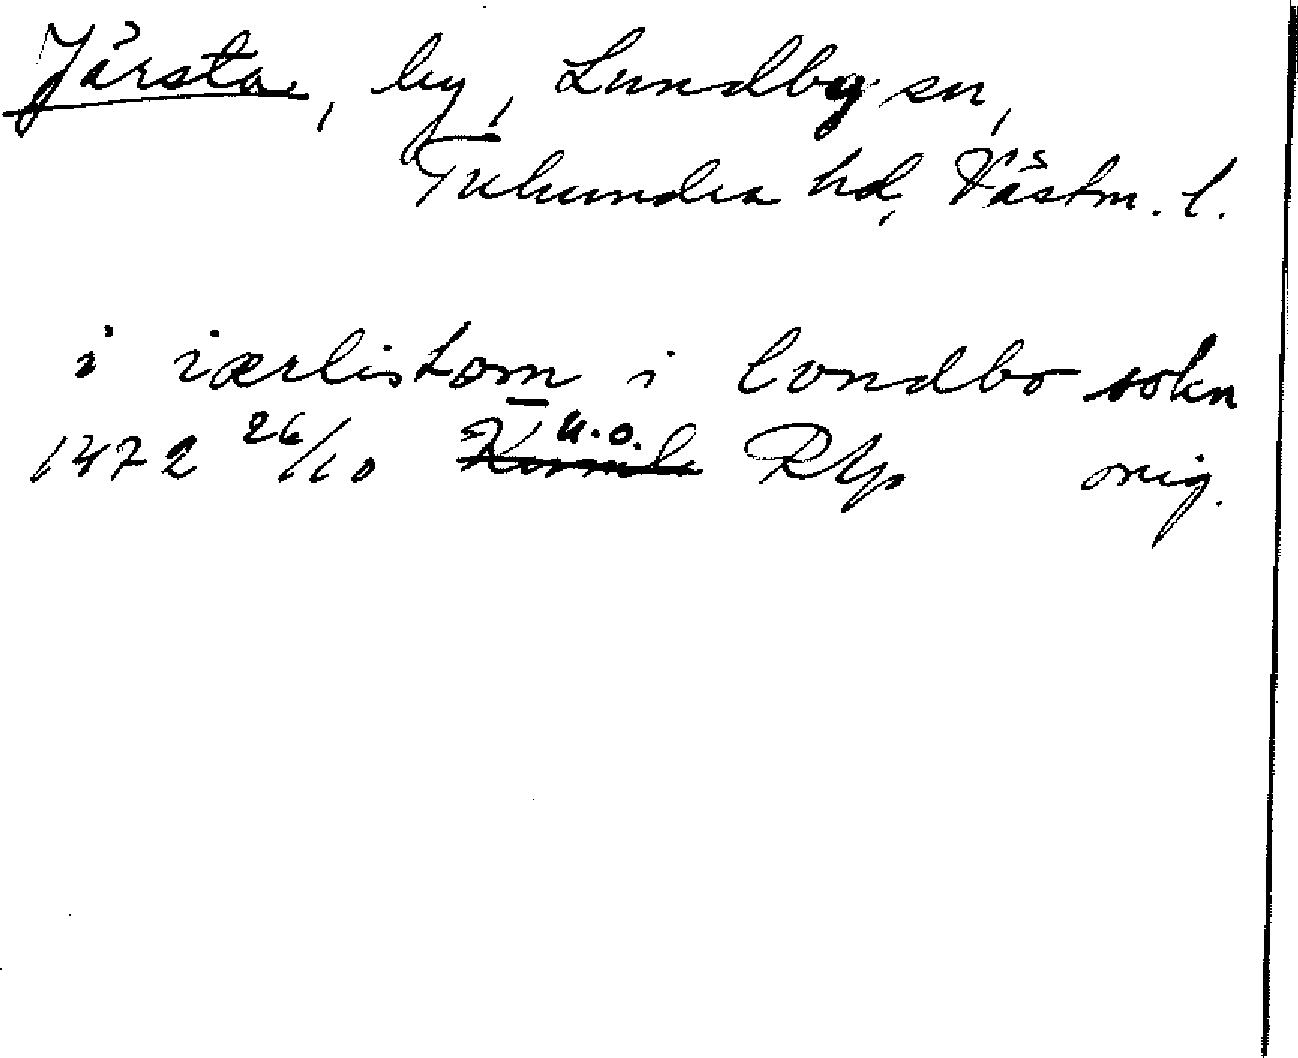 Järsta, by, Lundby sn,
Tuhundra hd, Västm. l.
i iærlistom i londbo sokn
1472 26/10 u.o. RAp orig.